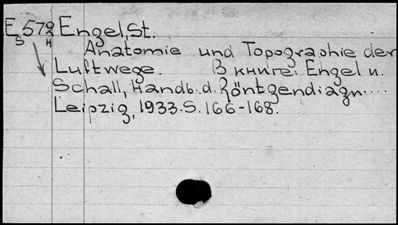 E572 Engel, St.
S H Anatomie und Topographie der
Luftwege. В книге: Engel u.
Schall, Handb. d. Röntgendiagn....
Leipzig, 1933. S. 166-168.